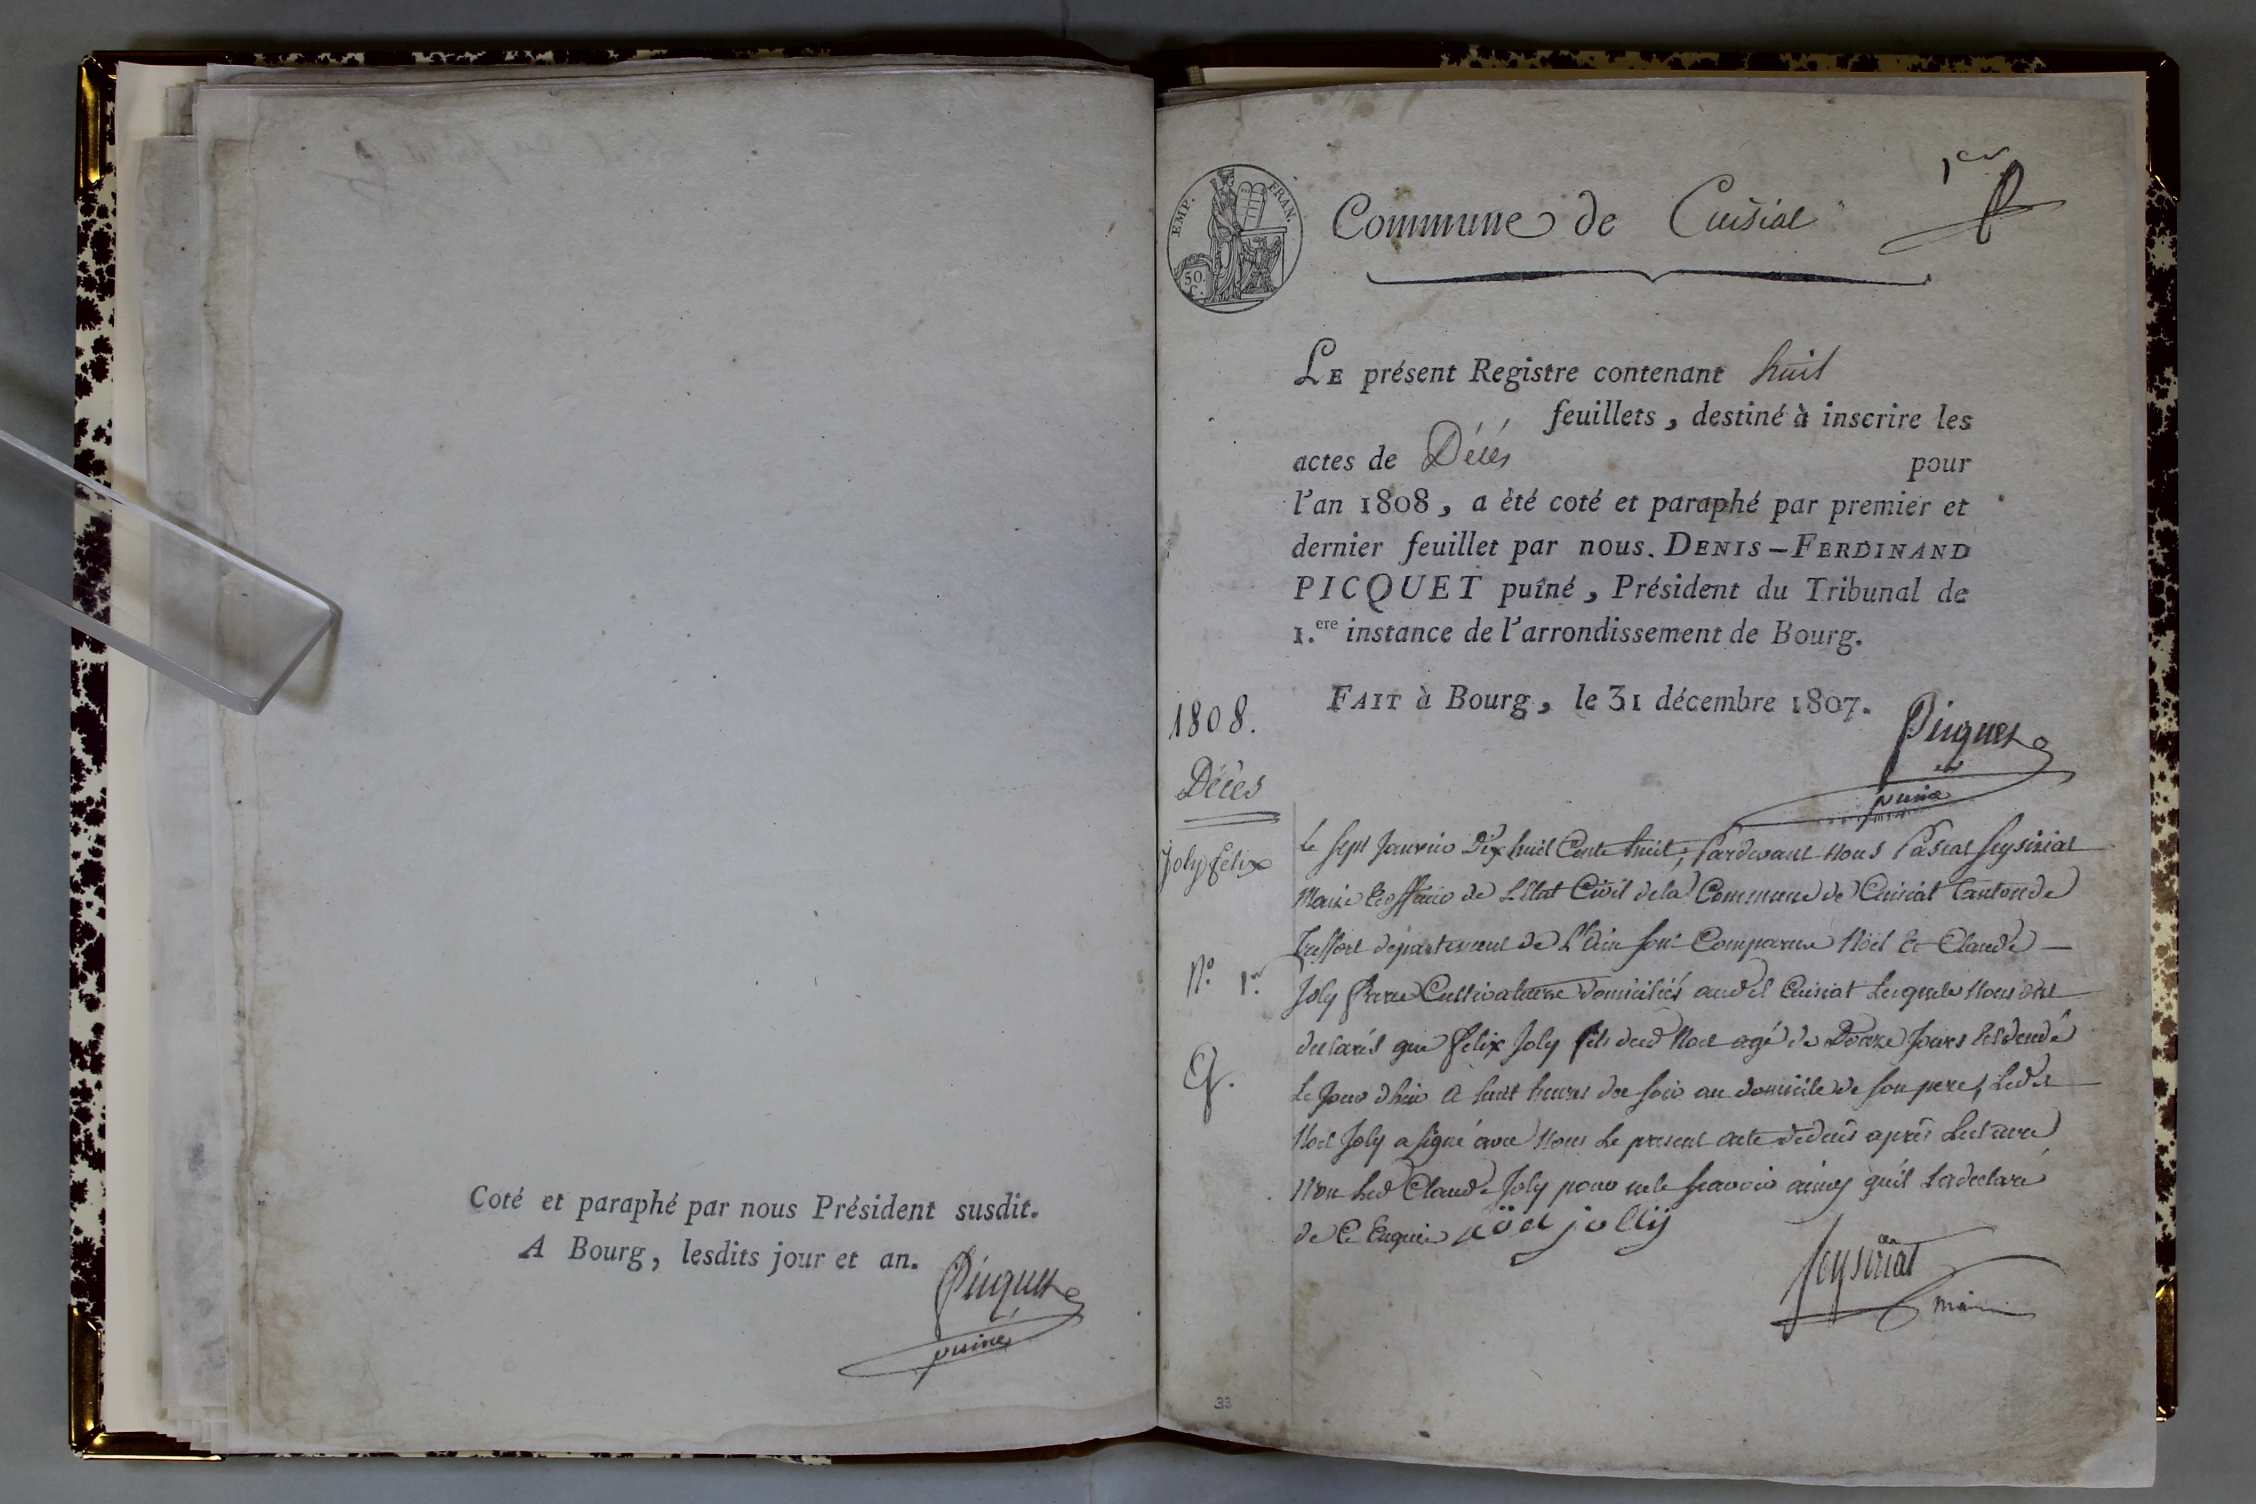 Coté et paraphé par nous Président susdit.
A Bourg, lesdits jour et an.
Picquet
puiné
1er
EMP. FRAN.
50 C.
Commune de Cuisiat
LE présent Registre contenant huit
feuillets, destiné à inscrire les
actes de Décés pour
l'an 1808, a èté coté et paraphé par premier et
dernier feuillet par nous. DENIS-FERDINAND
PICQUET puîné, Président du Tribunal de
1.ere instance de l'arrondissement de Bourg.
FAIT à Bourg, le 31 décembre 1807.
Picquet
puiné
1808.
Décès
Joly felix
N° 1er
Le sept Janvier Dix huit Cent huit, Pardevant Nous Pascal Seysiriat
Maire & officier de L'Etat Civil de la Commune de Cuisiat Canton de
Treffort département de L'Ain sont Comparus Noël Et Claude
Joly freres Cultivateurs domiciliés audit Cuisiat Lesquels Nous ont
declarés que felix Joly fils dud Noel agé de Douze Jours Est decedé
Le Jour dhier a huit heures du soir au domicile de son pere, Ledit
Noel Joly a signé avec Nous Le present acte de deces après Lecture
Non Led Claude Joly pour ne le scavoir ainsy qu'il La declaré
de Ce Enquis nöel jollÿ
Seysiriat
maire
33